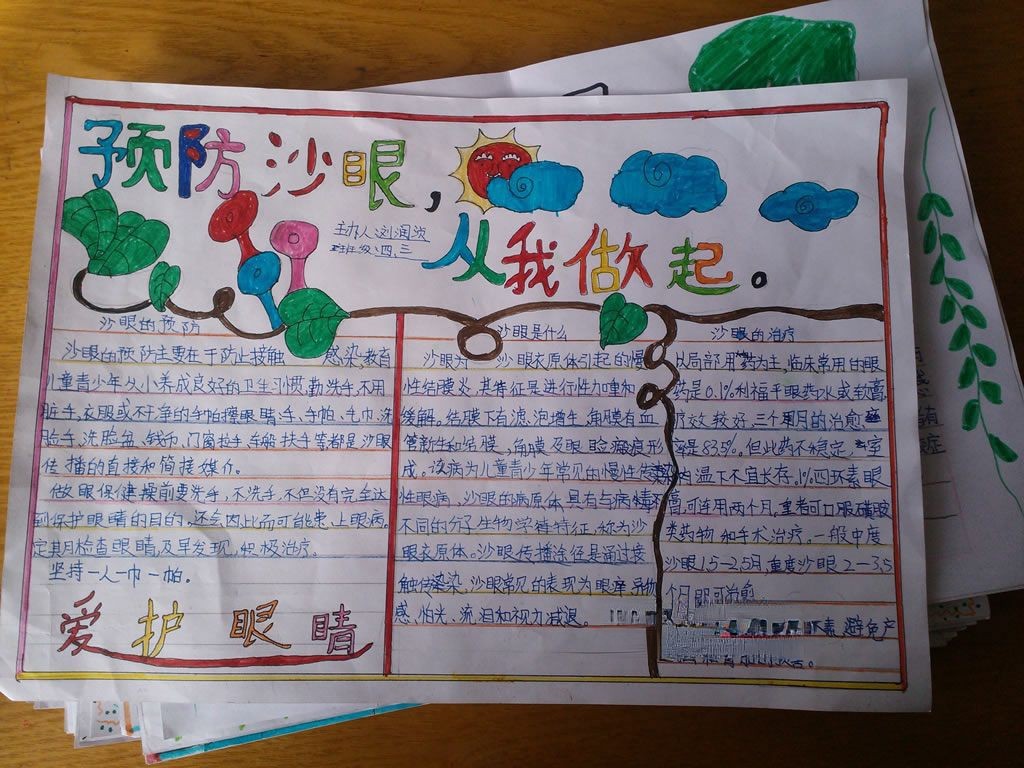 预防沙眼，
从我做起。
主办人刘润
班级四、三
沙眼的预防
沙眼的预防主要在于防止接触 感染，教育
儿童青少年从小养成良好的卫生习惯，勤洗手，不用
脏手、衣服或不干净的手帕擦眼睛，手、手帕、毛巾、洗
脸手、洗脸盆、钱币、门窗扶手、车船扶手等都是沙眼
传播的直接和简接媒介。
做眼保健操前要洗手，不洗手，不但没有完全达
到保护眼睛的目的，还会因此而可能患上眼病。
定期检查眼睛，及早发现，积极治疗。
坚持一人一巾一帕。
爱护眼睛
沙眼是什么
沙眼为 沙眼衣原体引起的慢
性结膜炎，其特征是进行性加重和
缓解。结膜下有滤泡增生，角膜有血
管新生和结膜，角膜及眼睑瘢痕形
成。该病为儿童青少年常见的慢性传染
性眼病，沙眼的病原体具有与病
不同的分子生物学特征，称为沙
眼衣原体。沙眼传播途径是通过接
触传染，沙眼常见的表现为眼痒、异物
感、怕光、流泪和视力减退。
沙眼的治疗
以局部用药为主，临床常用的眼
药是0.1%利福平眼药水或软膏，
效较好，三个月的治愈
率是83.5%。但此药不稳定，室
内温下不宜长存。1%四环素眼
膏，可连用两个月，重者可口服磺胺
类药物和手术治疗。一般中度
沙眼1.5-2.5月，重度沙眼2-3.5
个月即可治愈
素，避免产